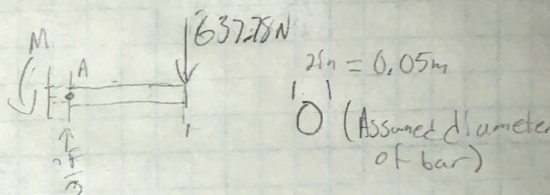 637.78N
M
A
2in = 0.05m
(Assumed diameter
of bar)